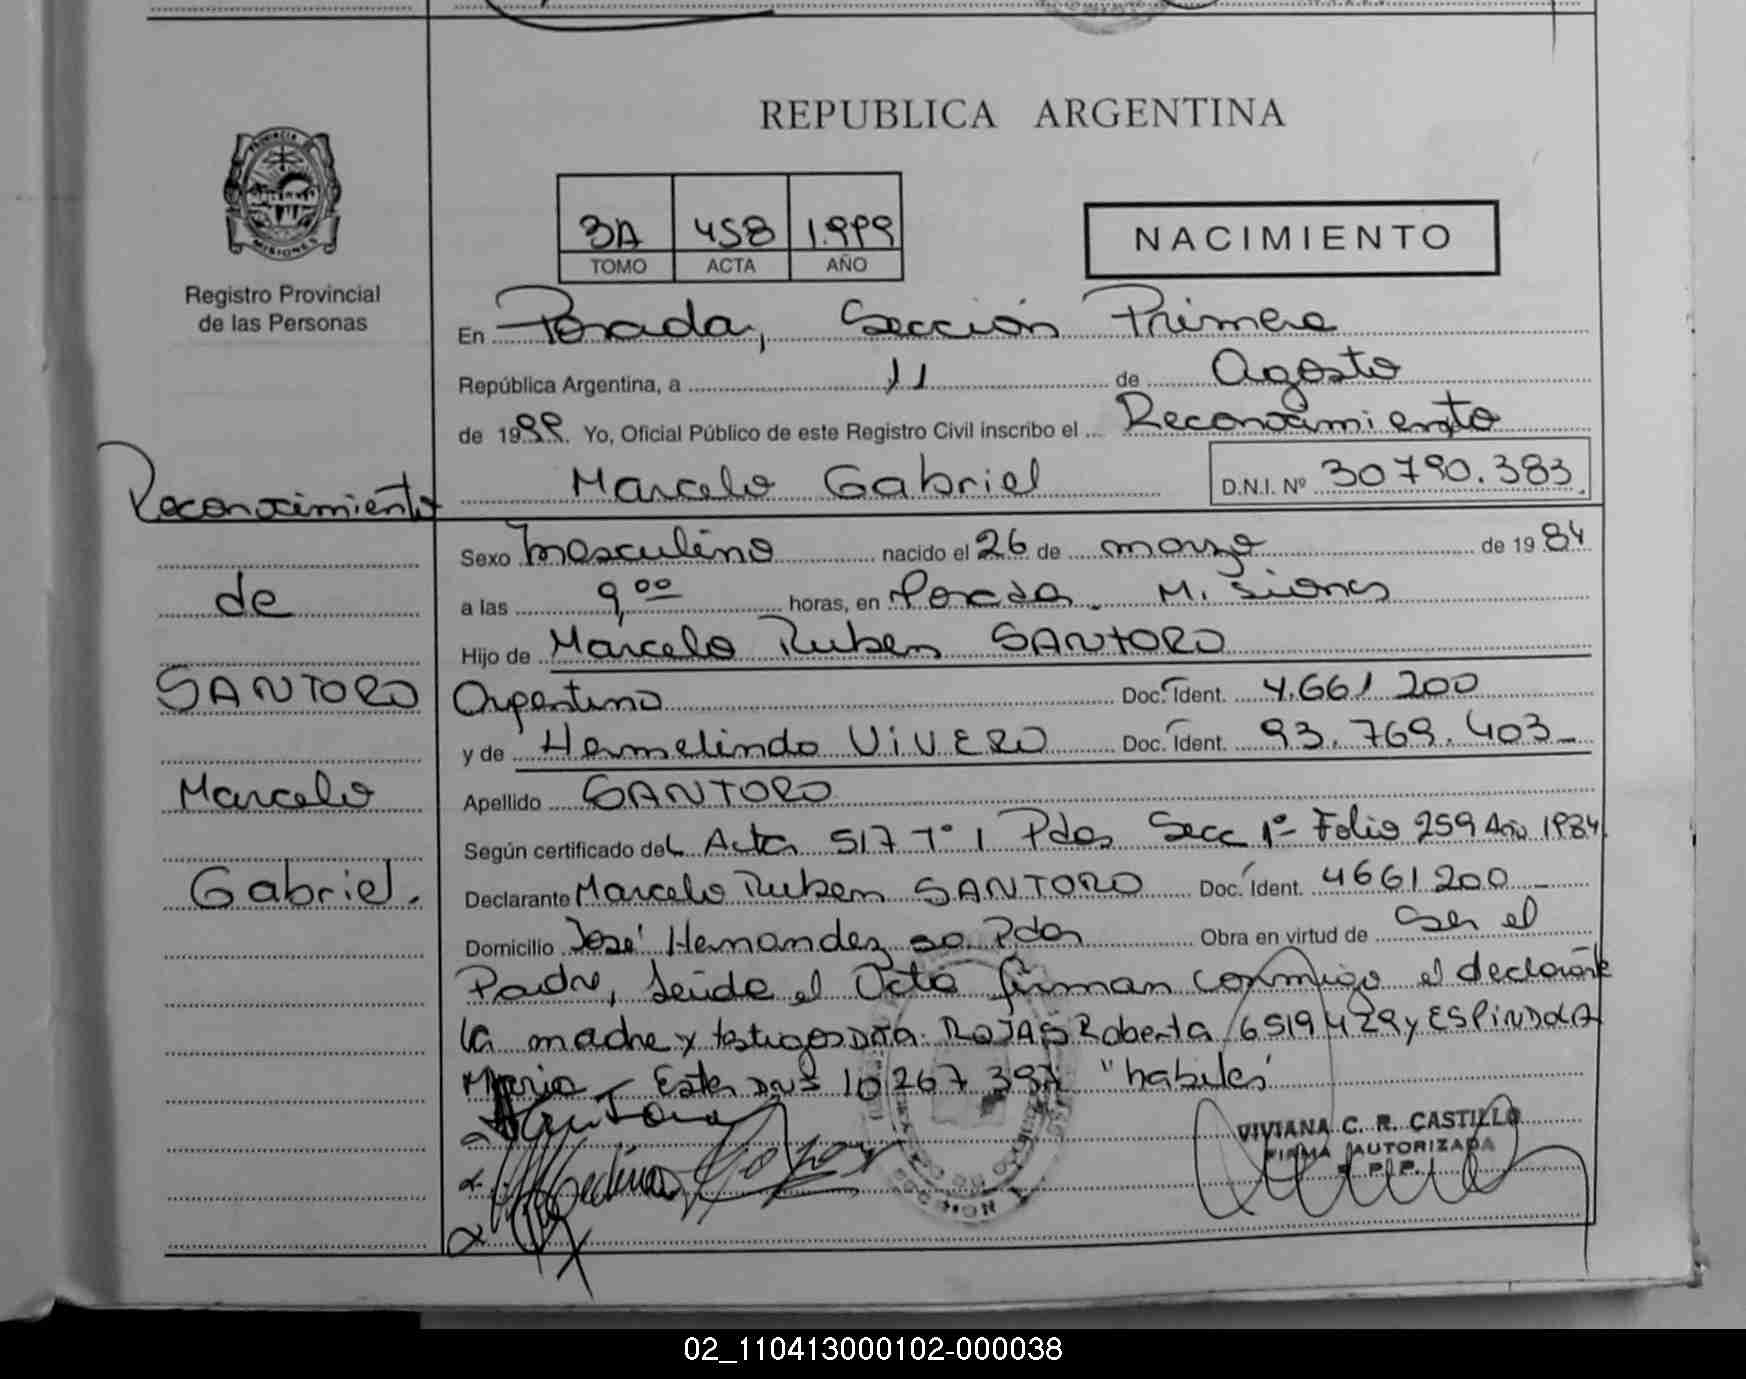 REPUBLICA ARGENTINA
PROVINCIA DE
MISIONES
Registro Provincial
de las Personas
3A 458 1.999
TOMO ACTA AÑO
NACIMIENTO
En Posadas, Sección Primera
República Argentina, a 11 de Agosto
de 1999. Yo, Oficial Público de este Registro Civil inscribo el Reconocimiento
Marcelo Gabriel D.N.I. Nº 30790.383
Reconocimiento
de
SANTORO
Marcelo
Gabriel.
Sexo masculino nacido el 26 de marzo de 1984
a las 9,00 horas, en Posadas. Misiones
Hijo de Marcelo Ruben SANTORO
Argentino Doc. Ident. 4.661 200
y de Hermelinda VIVERO Doc. Ident. 93.769.403
Apellido SANTORO
Según certificado del Acta 517 Tº 1 Pdas Secc 1º Folio 259 Año 1984
Declarante Marcelo Ruben SANTORO Doc. Ident. 4661200
Domicilio José Hernandez Pdas Obra en virtud de Ser el
Padre, Leida el Acta firman conmigo el declarante
la madre y testigos ROJAS Roberta 6519429 y ESPINDOLA
Maria Ester 10 267 "habiles"
VIVIANA C. R. CASTILLO
FIRMA AUTORIZADA
R.P.P.
02_110413000102-000038